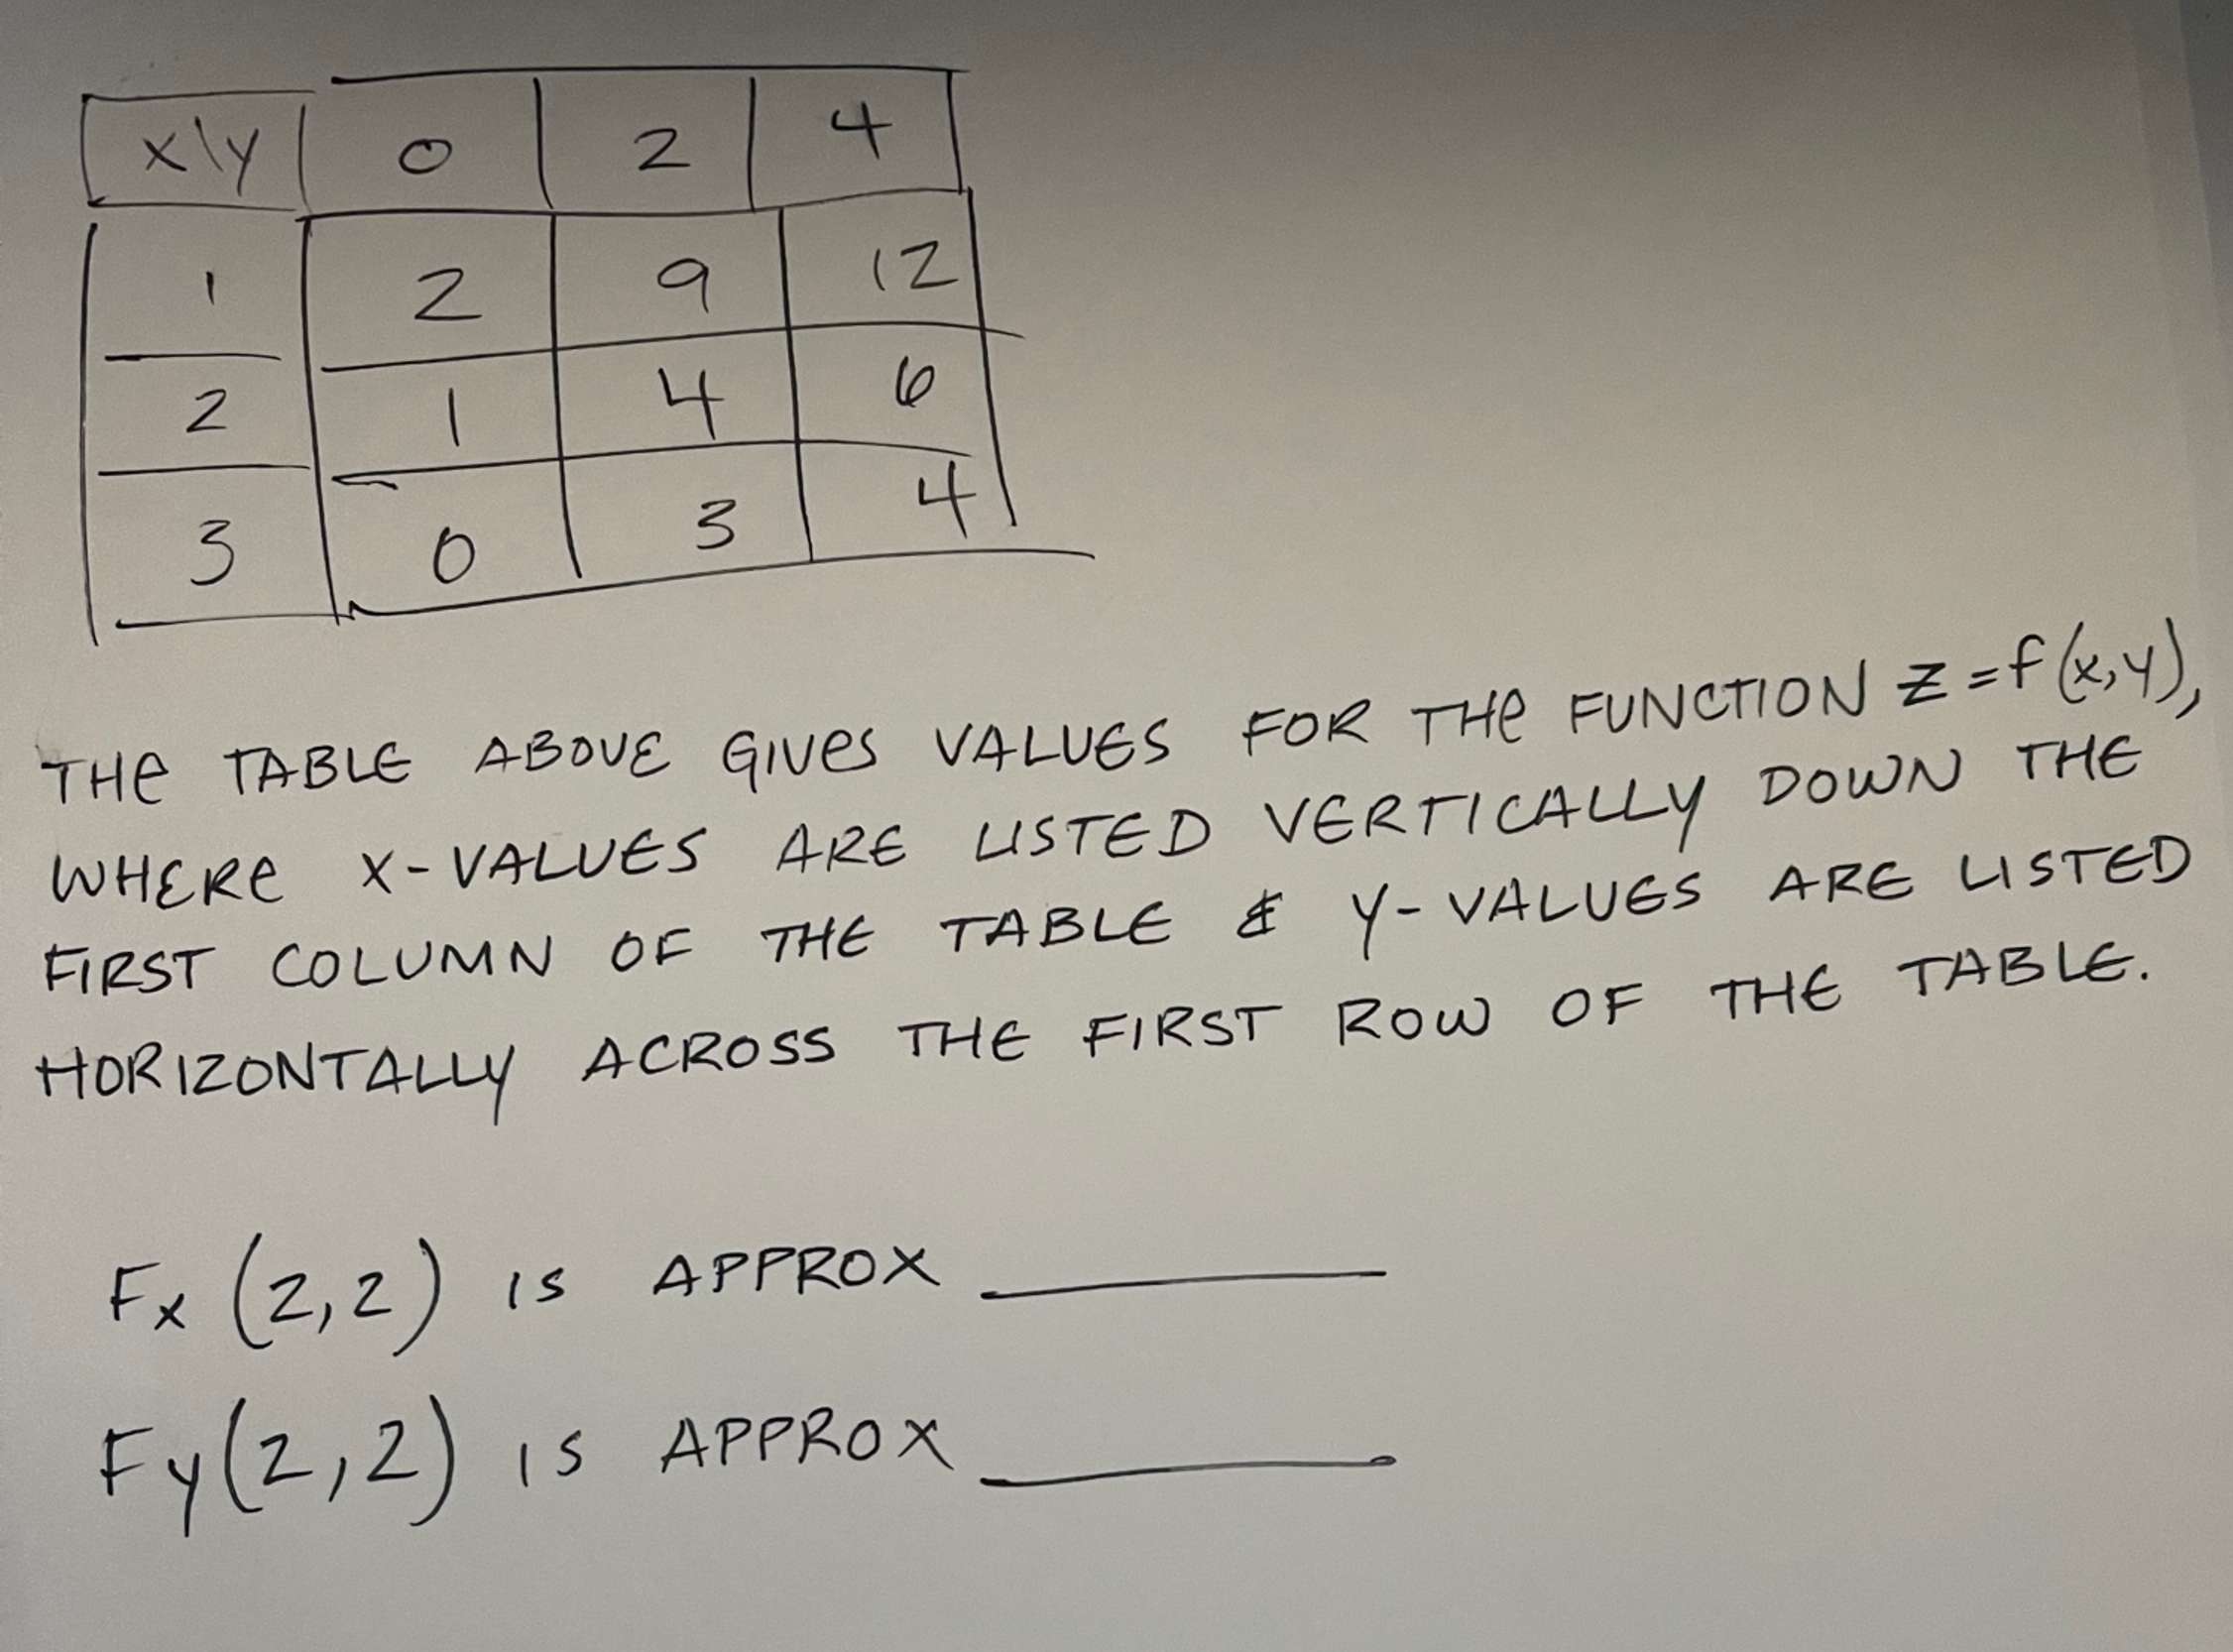 x\y 0 2 4
1 2 9 12
2 1 4 6
3 0 3 4
THE TABLE ABOVE GIVES VALUES FOR THE FUNCTION Z=f(x,y),
WHERE X-VALUES ARE LISTED VERTICALLY DOWN THE
FIRST COLUMN OF THE TABLE & Y-VALUES ARE LISTED
HORIZONTALLY ACROSS THE FIRST ROW OF THE TABLE.
Fx (2,2) IS APPROX ____
Fy(2,2) IS APPROX ____